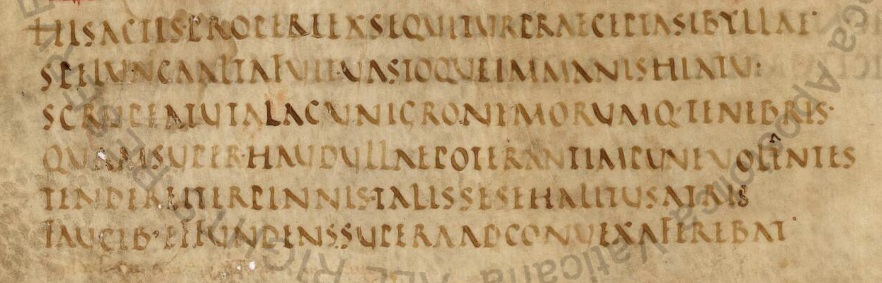 HISACTISPROPEREEXSEQUITURPRAECEPTASIBYLLAE·
SPELUNCAALTAFUITUASTOQUEIMMANISHIATU·
SCRUPEATUTALACUNIGRONEMORUMQ·TENEBRIS·
QUAMSUPER·HAUDULLAEPOTERANTIMPUNEUOLANTES
TENDEREITERPINNIS·TALISSESEHALITUSATRIS
FAUCIB·EFFUNDENSSUPERAADCONUEXAFEREBAT·